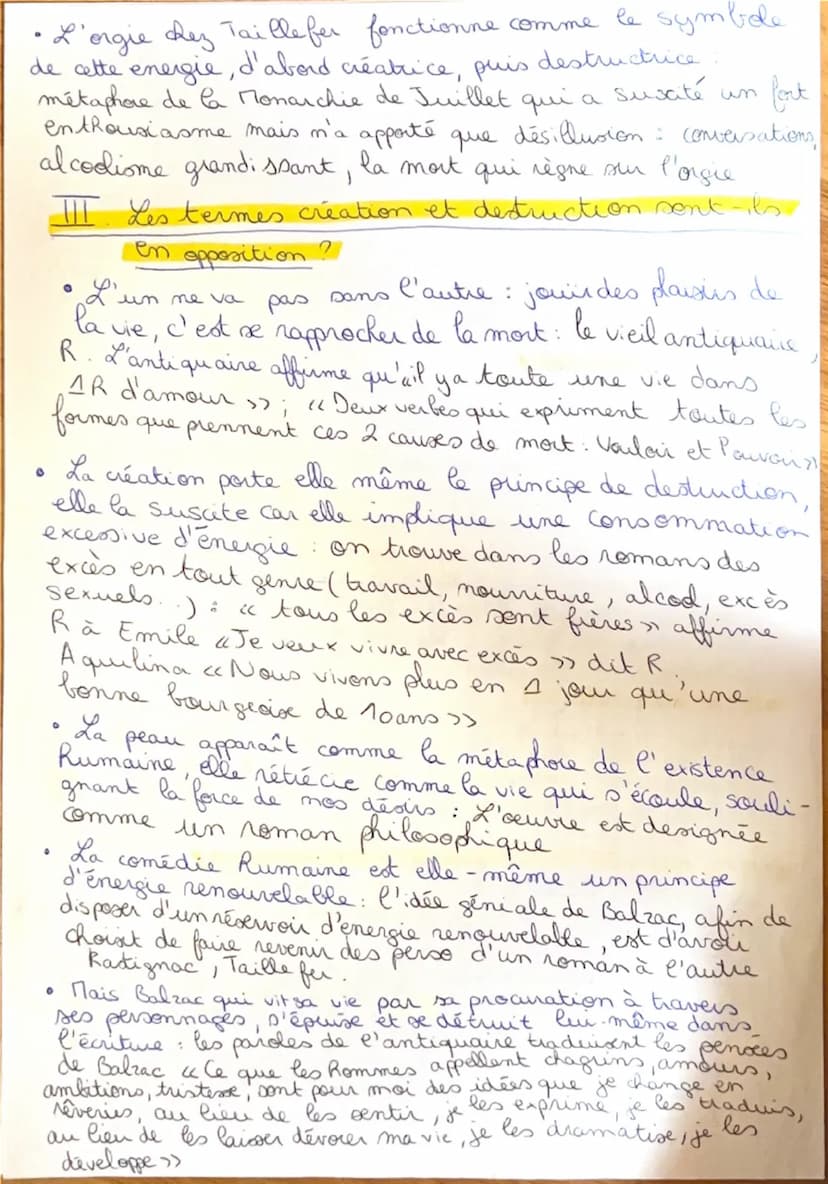 • L'orgie chez Taillefer fonctionne comme le symbole
de cette energie, d'abord créatrice, puis destructrice :
métaphore de la Monarchie de Juillet qui a suscité un fort
enthousiasme mais n'a apporté que désillusion : conversations,
alcoolisme grandissant, la mort qui règne sur l'orgie
III Les termes création et destruction sont-ils
en opposition ?
• L'un ne va pas sans l'autre : jouir des plaisirs de
la vie, c'est se rapprocher de la mort : le vieil antiquaire,
R. L'antiquaire affirme qu'"il y a toute une vie dans
1R d'amour >> ; << Deux verbes qui expriment toutes les
formes que prennent ces 2 causes de mort : Vouloir et Pouvoir >>
• La création porte elle même le principe de destruction,
elle la suscite car elle implique une consommation
excessive d'énergie : on trouve dans les romans des
excès en tout genre (travail, nourriture, alcool, excès
sexuels...) : << tous les excès sont frères >> affirme
R à Emile << Je veux vivre avec excès >> dit R.
Aquilina << Nous vivons plus en 1 jour qu'une
bonne bourgeoise de 10ans >>
• La peau apparaît comme la métaphore de l'existence
humaine, elle rétrécie comme la vie qui s'écoule, souli-
gnant la force de nos désirs : L'oeuvre est designée
comme un roman philosophique
• La comédie humaine est elle-même un principe
d'énergie renouvelable : l'idée géniale de Balzac, afin de
disposer d'un réservoir d'énergie renouvelable, est d'avoir
choisit de faire revenir des perso d'un roman à l'autre
Rastignac, Taillefer.
• Mais Balzac qui vit sa vie par sa procuration à travers
ses personnages, s'épuise et se détruit lui-même dans
l'écriture : les paroles de l'antiquaire traduisent les pensées
de Balzac << Ce que les hommes appellent chagrins, amours,
ambitions, tristesse, sont pour moi des idées que je change en
rêveries, au lieu de les sentir, je les exprime, je les traduis,
au lieu de les laisser dévorer ma vie, je les dramatise, je les
développe >>